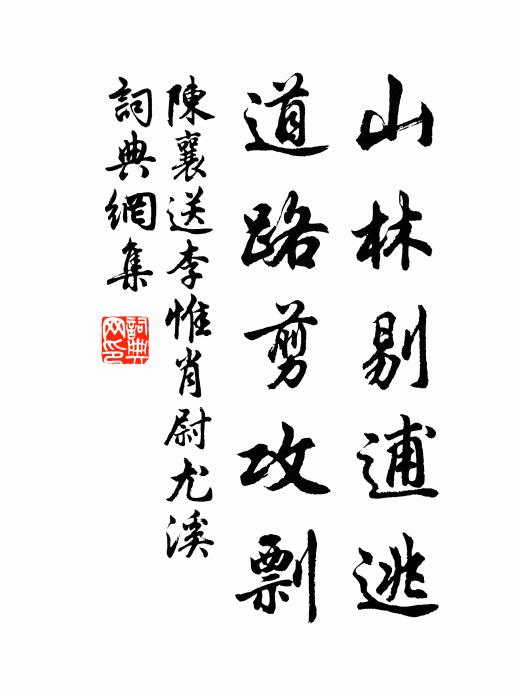 山林剔逋逃
道路剪攻剽
陳襄送李惟肖尉尤溪
詞典網集
詞典网印